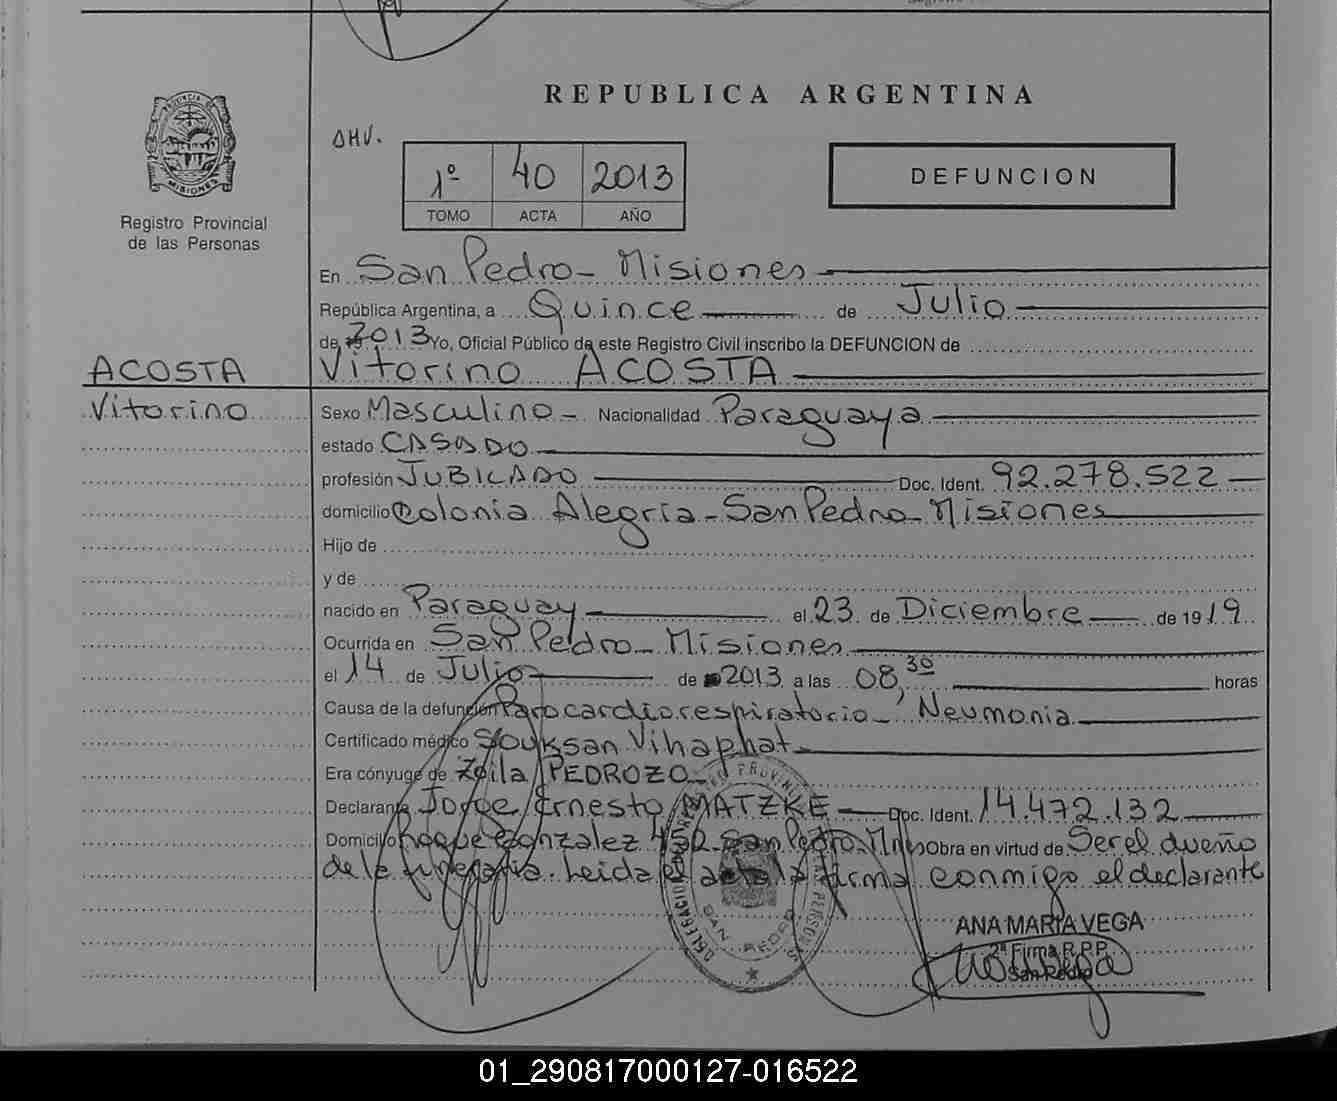 REPUBLICA ARGENTINA
PROVINCIA DE
MISIONES
Registro Provincial
de las Personas
DHV.
1º 40 2013
TOMO ACTA AÑO
DEFUNCION
En San Pedro - Misiones
República Argentina, a Quince de Julio
de 2013 Yo, Oficial Público de este Registro Civil inscribo la DEFUNCION de
ACOSTA
Vitorino
Vitorino ACOSTA
Sexo Masculino - Nacionalidad Paraguaya
estado CASADO
profesión JUBILADO Doc. Ident. 92.278.522
domicilio Colonia Alegria - San Pedro - Misiones
Hijo de
y de
nacido en Paraguay el 23 de Diciembre de 1919
Ocurrida en San Pedro - Misiones
el 14 de Julio de 2013 a las 08,30 horas
Causa de la defunción Parocardiorespiratorio - Neumonia
Certificado médico Souksan Vihaphat
Era cónyuge de Zoila PEDROZO
Declarante Jorge Ernesto MATZKE Doc. Ident. 14.472.132
Domicilio Roque Gonzalez San Pedro. Mns obra en virtud de Ser el dueño
de la funeraria. Leida el acta la firma conmigo el declarante
SAN PEDRO
ANA MARIA VEGA
2ª Firma R.P.P.
San Pedro
01_290817000127-016522